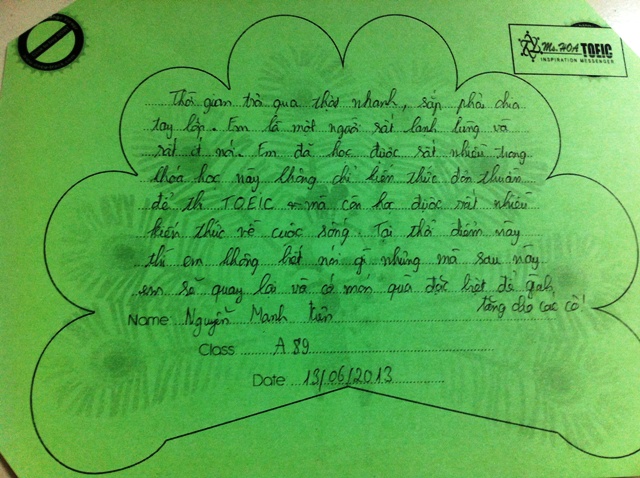 Ms. HOA TOEIC
INSPIRATION MESSENGER
Thời gian trôi qua thật nhanh, sắp phải chia
tay lớp. Em là một người rất lạnh lùng và
rất ít nói. Em đã học được rất nhiều trong
khóa học này không chỉ kiến thức đơn thuần
để thi TOEIC mà còn học được rất nhiều
kiến thức về cuộc sống. Tại thời điểm này
thì em không biết nói gì nhưng mà sau này
em sẽ quay lại và có món quà đặc biệt để gành
tặng cho các cô!
Name Nguyễn Mạnh Tiến
Class A89
Date 13/06/2013